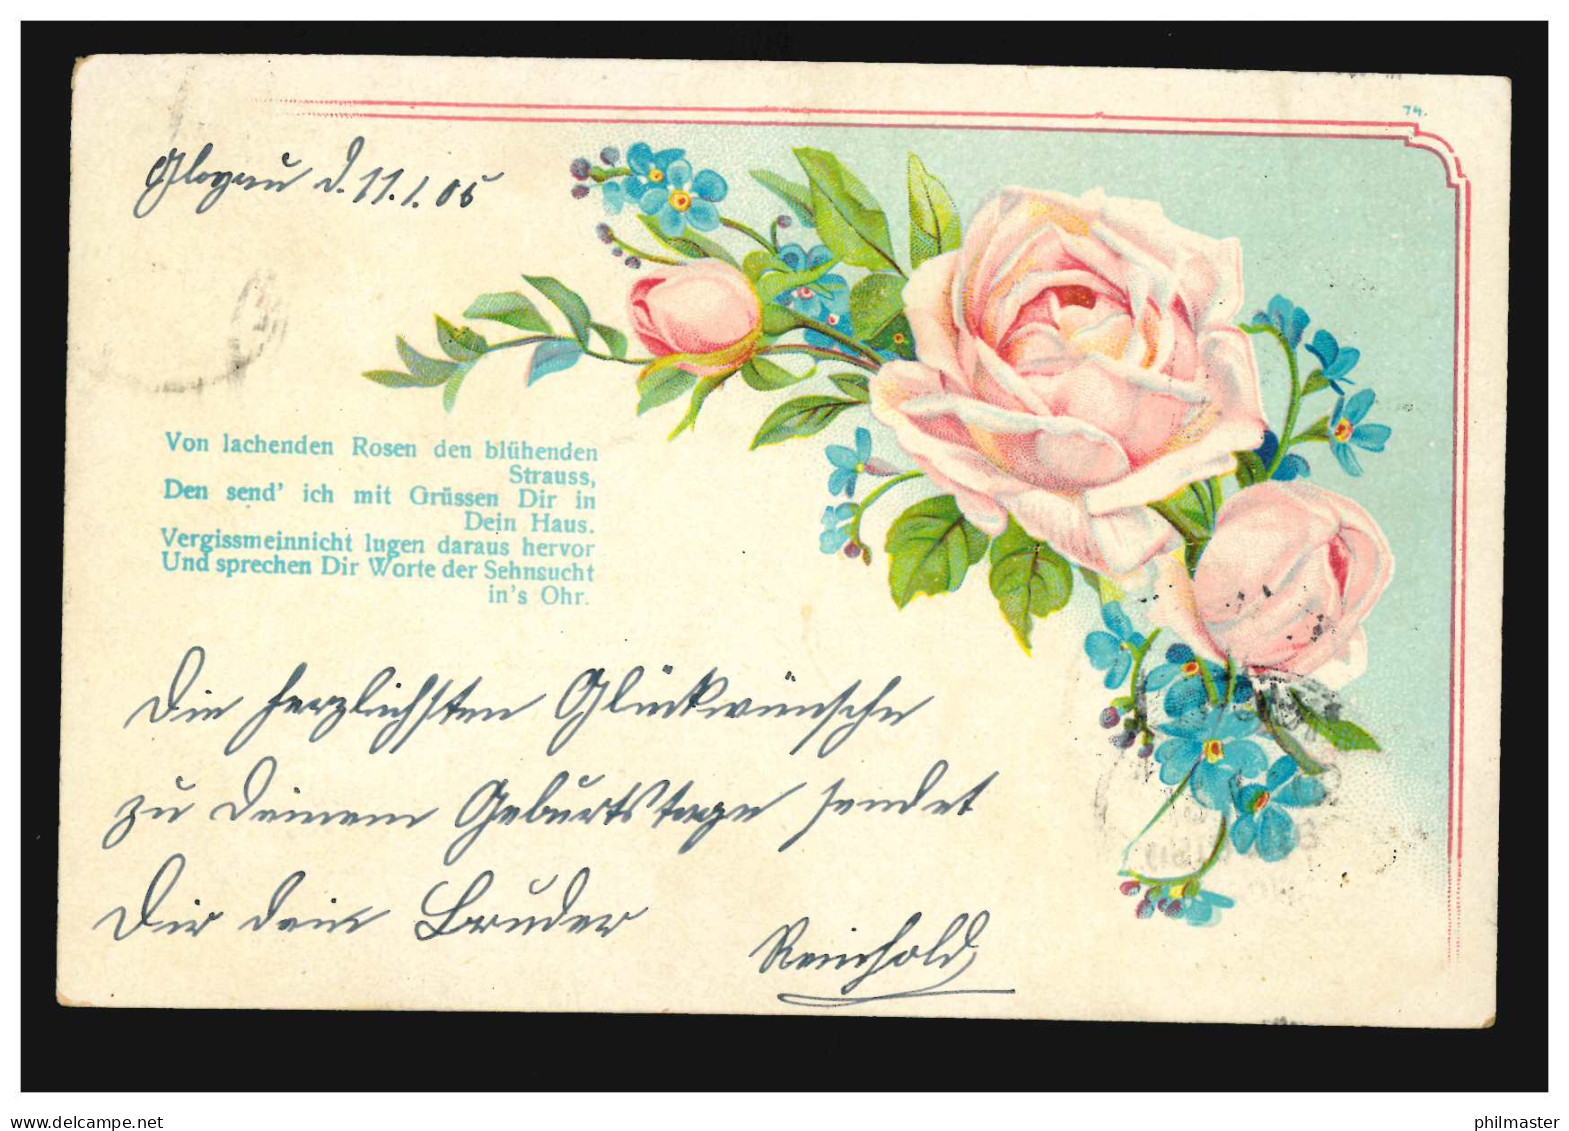 74.
Glogau d. 11.1.06
Von lachenden Rosen den blühenden
Strauss,
Den send' ich mit Grüssen Dir in
Dein Haus.
Vergissmeinnicht lugen daraus hervor
Und sprechen Dir Worte der Sehnsucht
in's Ohr.
Die herzlichsten Glückwünsche
zu Deinem Geburtstage sendet
Dir dein Bruder
Reinhold
www.delcampe.net
philmaster